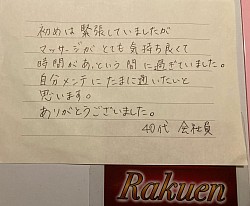 初めは緊張していましたが
マッサージがとても気持ち良くて
時間があっという間に過ぎていました。
自分メンテにたまに通いたいと
思います。
ありがとうございました。
40代 会社員
Rakuen